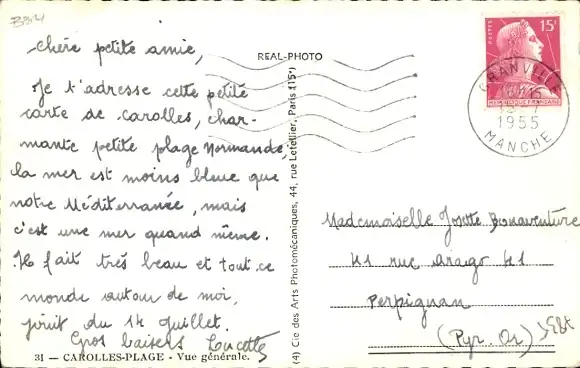 Chère petite amie,
Je t'adresse cette petite
carte de Carolles, char-
mante petite plage Normande
la mer est moins bleue que
notre Méditerranée, mais
c'est une mer quand même.
Il fait très beau et tout ce
monde autour de moi,
jouit du 14 Juillet.
Gros baisers Lucette
31 — CAROLLES-PLAGE - Vue générale.
REAL-PHOTO
(4) Cie des Arts Photomécaniques, 44, rue Letellier, Paris (15e)
POSTES 15F
REPUBLIQUE FRANÇAISE
GRANVILLE
1955
MANCHE
Mademoiselle Josette Bonaventure
41 rue Arago 41
Perpignan
(Pyr. Or)